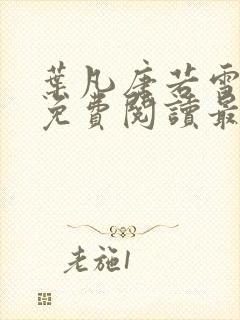 葉凡唐若雪
免費閱讀最
老施1